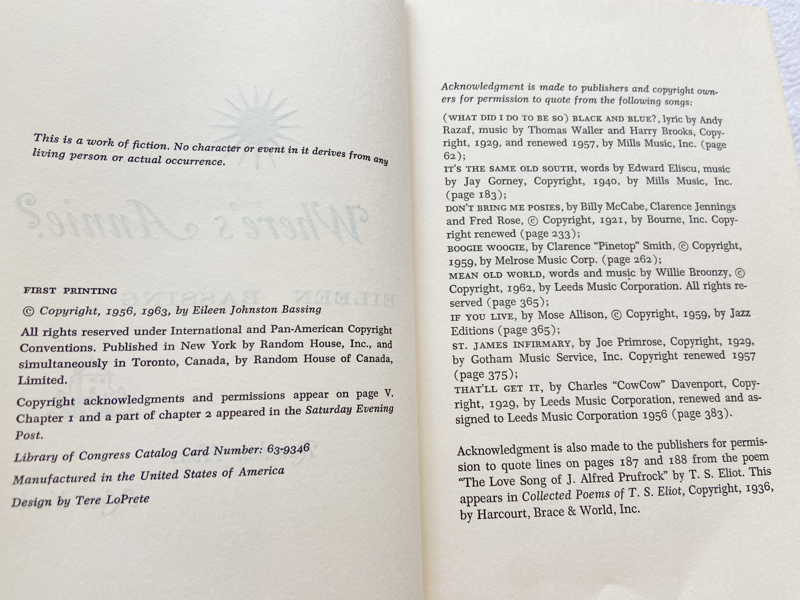 This is a work of fiction. No character or event in it derives from any
living person or actual occurrence.
Where's Annie?
EILEEN BASSING
FIRST PRINTING
© Copyright, 1956, 1963, by Eileen Johnston Bassing
All rights reserved under International and Pan-American Copyright
Conventions. Published in New York by Random House, Inc., and
simultaneously in Toronto, Canada, by Random House of Canada,
Limited.
Copyright acknowledgments and permissions appear on page V.
Chapter 1 and a part of chapter 2 appeared in the Saturday Evening
Post.
Library of Congress Catalog Card Number: 63-9346
Manufactured in the United States of America
Design by Tere LoPrete
Acknowledgment is made to publishers and copyright own-
ers for permission to quote from the following songs:
(WHAT DID I DO TO BE SO) BLACK AND BLUE?, lyric by Andy
Razaf, music by Thomas Waller and Harry Brooks, Copy-
right, 1929, and renewed 1957, by Mills Music, Inc. (page
62);
IT'S THE SAME OLD SOUTH, words by Edward Eliscu, music
by Jay Gorney, Copyright, 1940, by Mills Music, Inc.
(page 183);
DON'T BRING ME POSIES, by Billy McCabe, Clarence Jennings
and Fred Rose, © Copyright, 1921, by Bourne, Inc. Copy-
right renewed (page 233);
BOOGIE WOOGIE, by Clarence "Pinetop" Smith, © Copyright,
1959, by Melrose Music Corp. (page 262);
MEAN OLD WORLD, words and music by Willie Broonzy, ©
Copyright, 1962, by Leeds Music Corporation. All rights re-
served (page 365);
IF YOU LIVE, by Mose Allison, © Copyright, 1959, by Jazz
Editions (page 365);
ST. JAMES INFIRMARY, by Joe Primrose, Copyright, 1929,
by Gotham Music Service, Inc. Copyright renewed 1957
(page 375);
THAT'LL GET IT, by Charles "CowCow" Davenport, Copy-
right, 1929, by Leeds Music Corporation, renewed and as-
signed to Leeds Music Corporation 1956 (page 383).
Acknowledgment is also made to the publishers for permis-
sion to quote lines on pages 187 and 188 from the poem
"The Love Song of J. Alfred Prufrock" by T. S. Eliot. This
appears in Collected Poems of T. S. Eliot, Copyright, 1936,
by Harcourt, Brace & World, Inc.